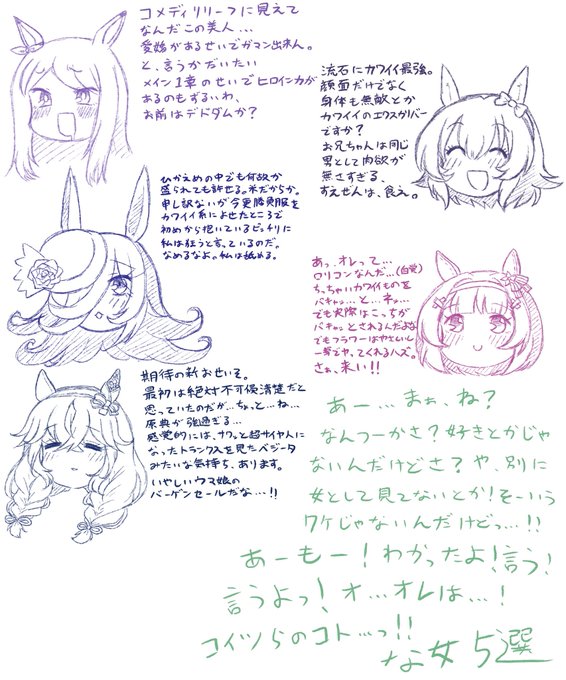 コメディリリーフに見えて
なんだこの美人…
愛嬌があるせいでガマン出来ん。
と、言うかだいたい
メイン1章のせいでヒロイン力が
あるのもずるいわ、
お前はデドダムか?
流石にカワイイ最強。
顔面だけでなく
身体も無敵とか
カワイイのエクスカリバー
ですか?
お兄ちゃんは同じ
男として肉欲が
無さすぎる、
すえぜんは、食え。
ひかえめの中でも何故か
盛られても許せる。米だからか。
申し訳ないが今更勝負服を
カワイイ系によせたところで
初めから抱いているビッチリに
私は狂うと言っているのだ。
なめるなよ。私は舐める。
あっ、オレって…
ロリコンなんだ…(自覚)
ちっちゃいカワイイものを
バキャッ…と…ネッ…
でも実際はこっちが
バキャッとされるんだよな
でもフラワーはやさしいし
一撃でヤってくれるハズ。
さぁ、来い!!
期待の新おせいそ。
最初は絶対不可侵清楚だと
思っていたのだが…ちょっと…ね…
原典が強過ぎる…
感覚的には、サクッと超サイヤ人に
なったトランクスを見たベジータ
みたいな気持ち、あります。
いやしいウマ娘の
バーゲンセールだな…!!
あー…まぁ、ね?
なんつーかさ?好きとかじゃ
ないんだけどさ?や、別に
女として見てないとか!そーいう
ワケじゃないんだけどっ…!!
あーもー!わかったよ!言う!
言うよっ!オ…オレは…!
コイツらのコト…っ!!
な女5選